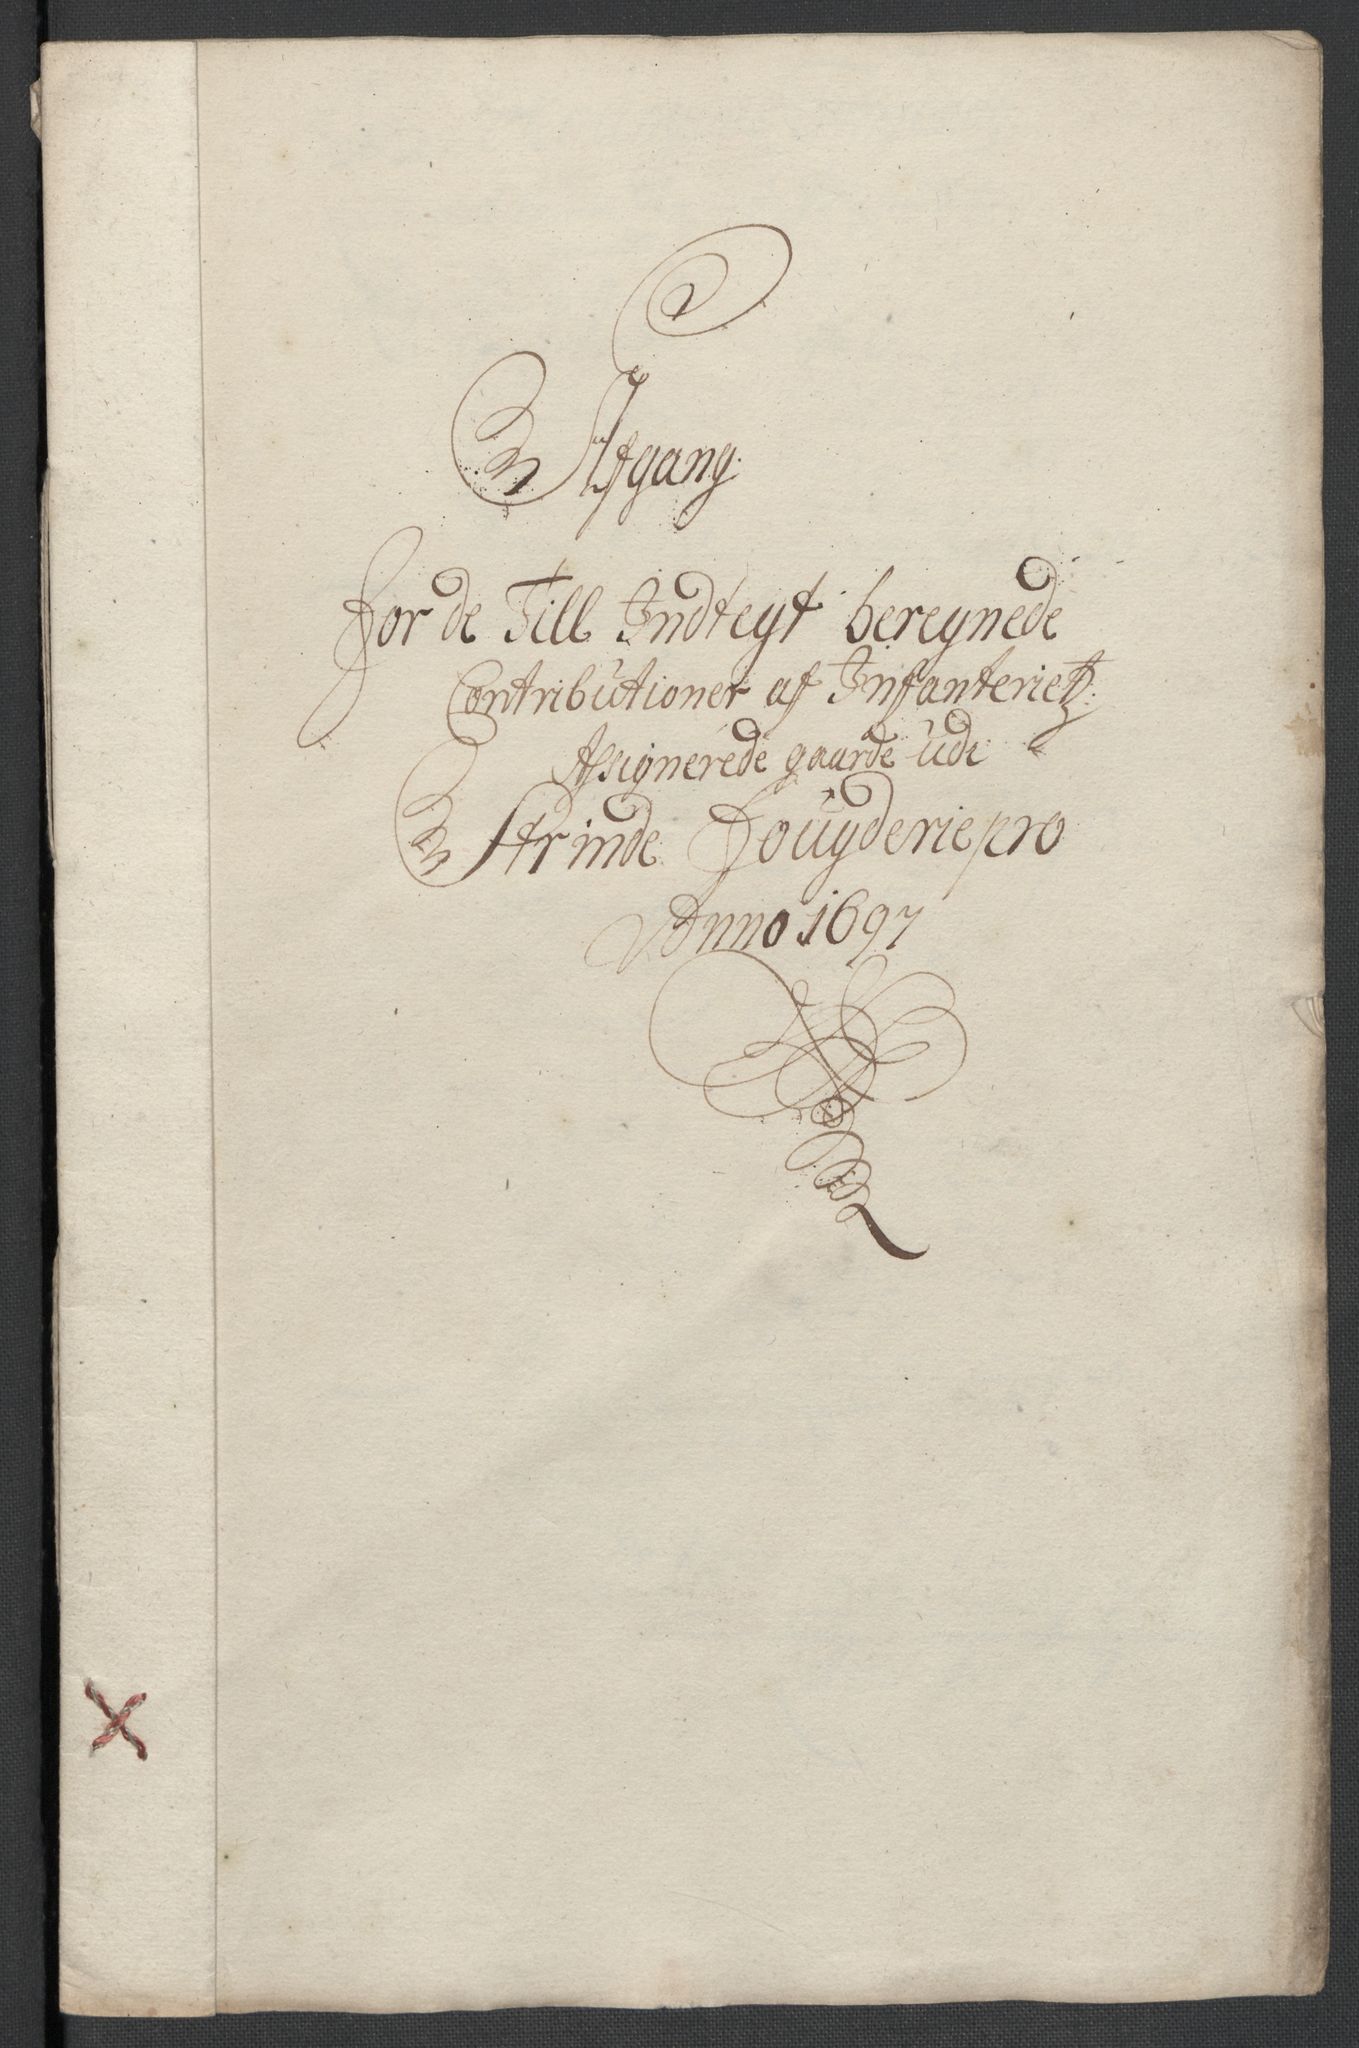 Afgang
For de Till Indtegt beregnede
Contributioner af Infanterietz
Assignerede gaarde udi
Strinde Fougderie pro
Anno 1697